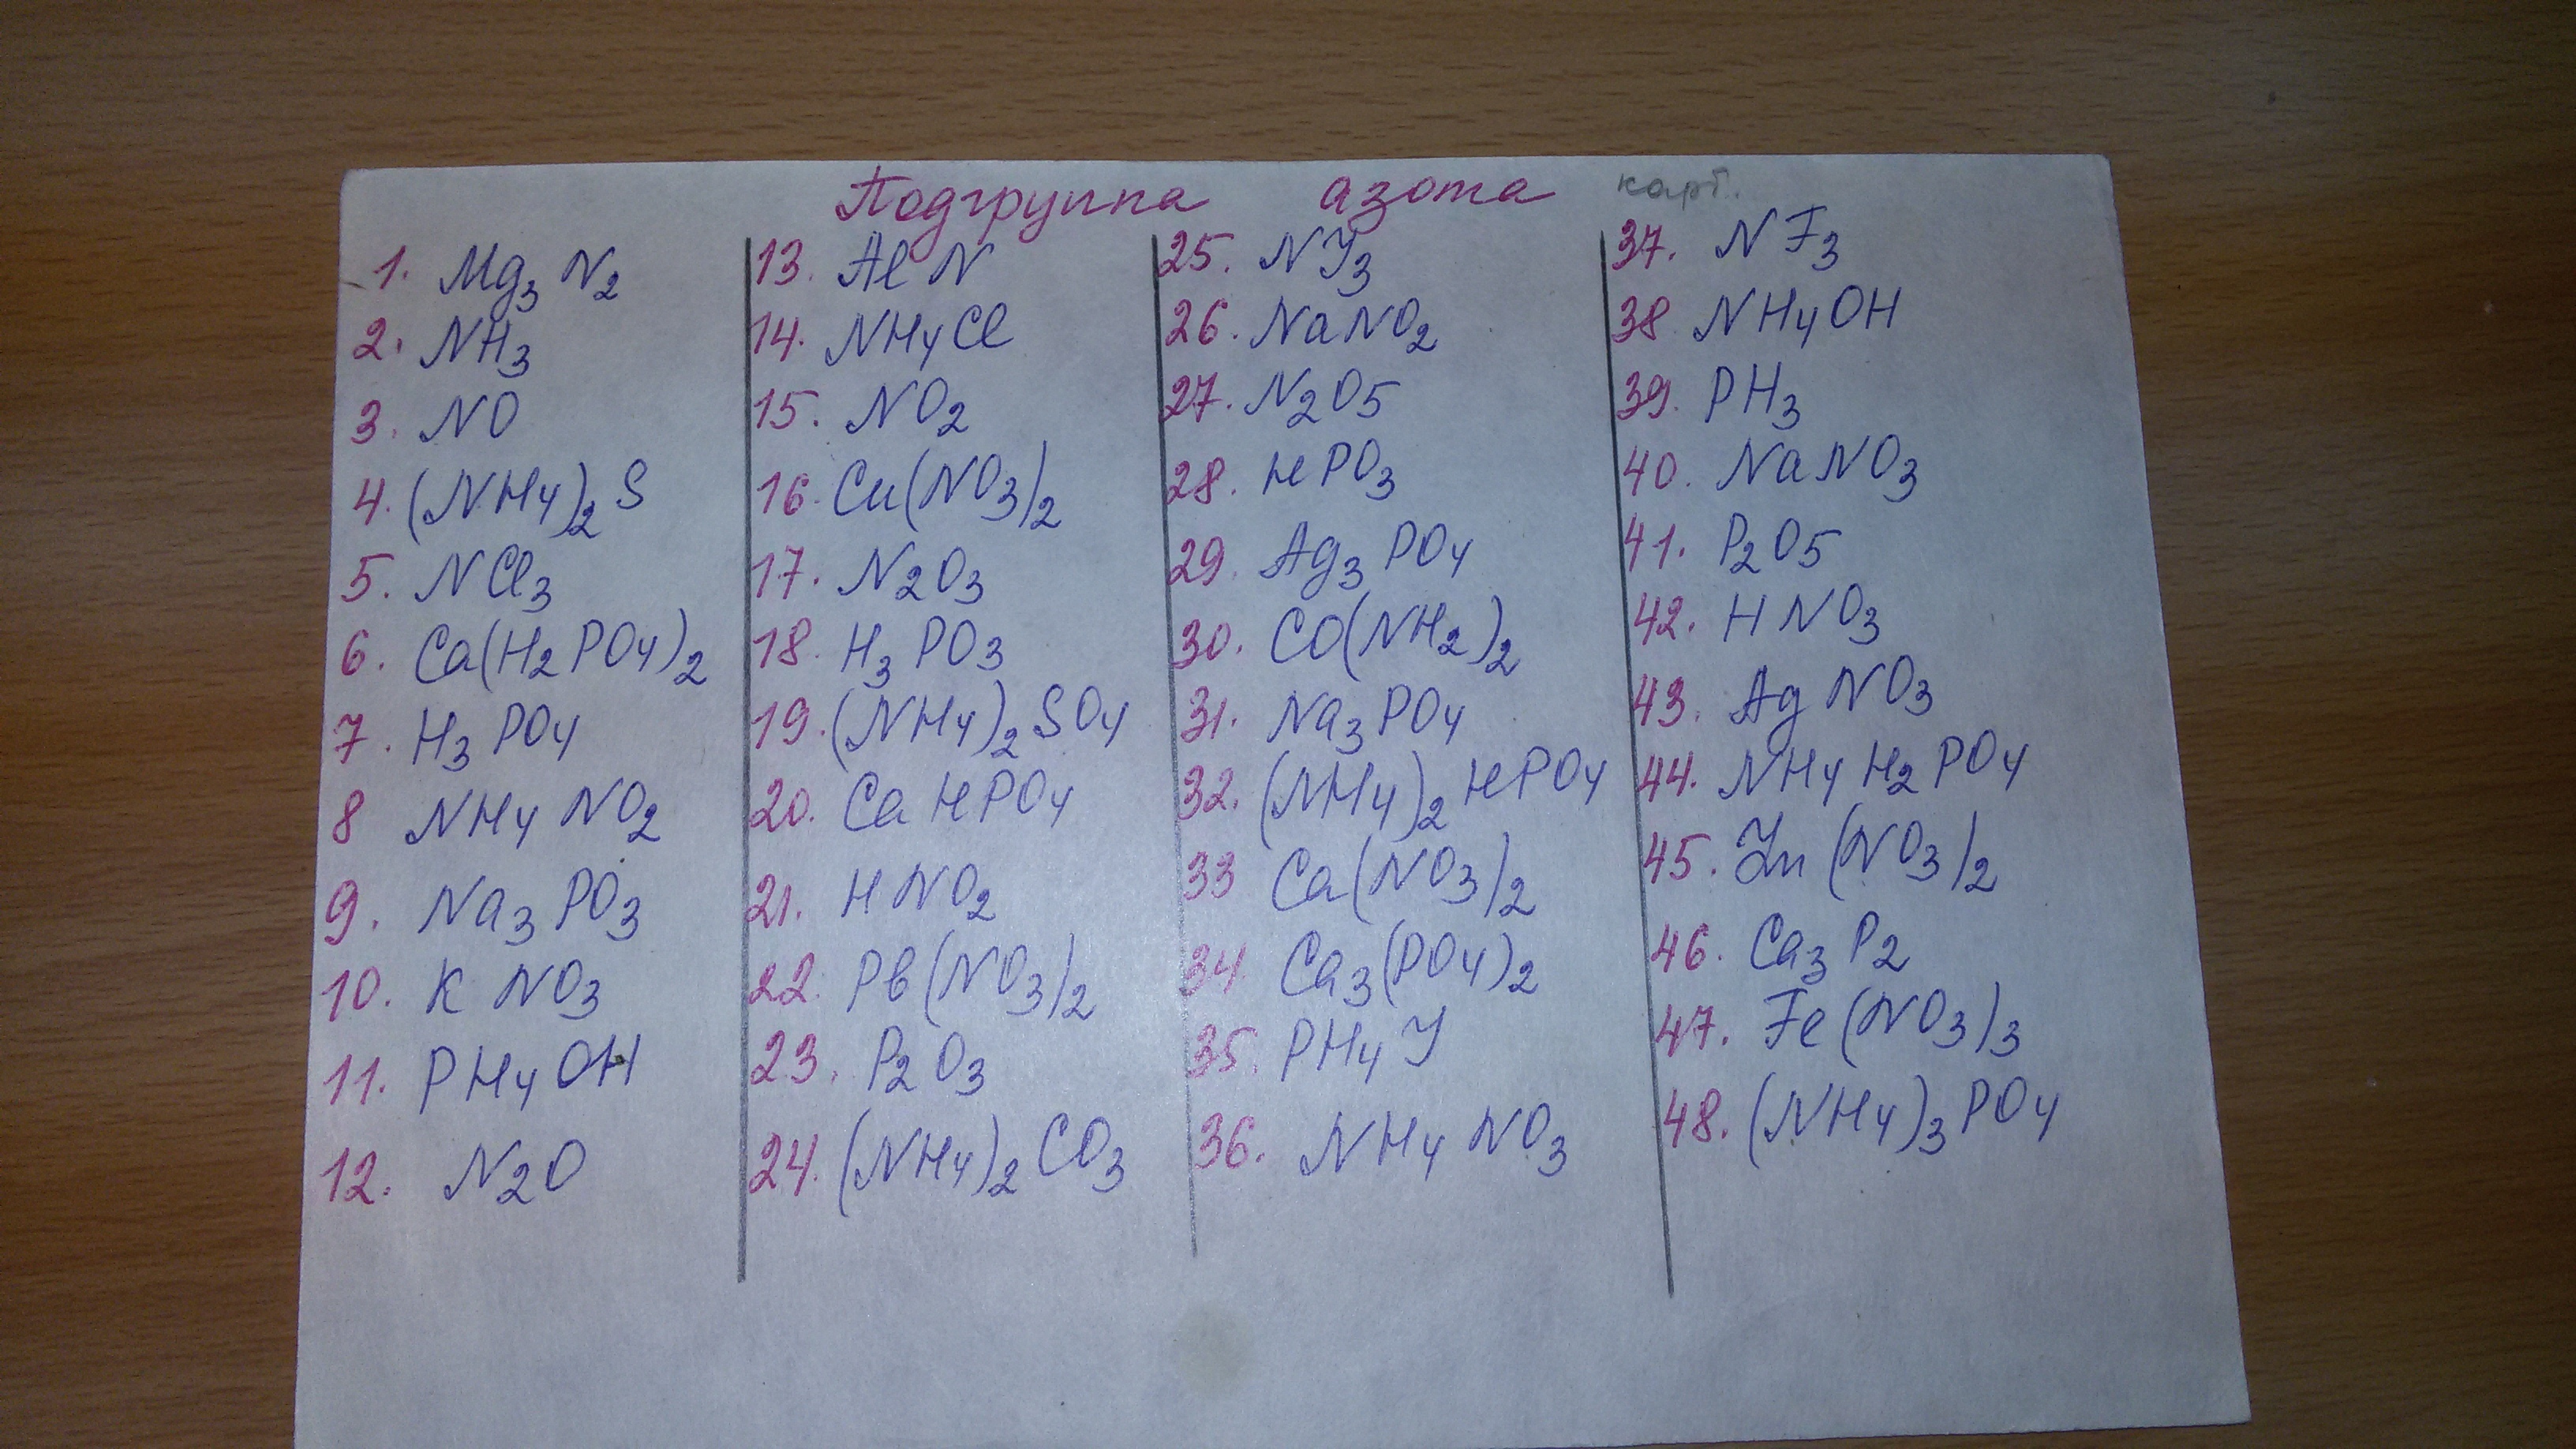 Подгруппа азота карт.
1. Mg3N2
2. NH3
3. NO
4. (NH4)2S
5. NCl3
6. Ca(H2PO4)2
7. H3PO4
8 NH4NO2
9. Na3PO3
10. KNO3
11. PH4OH
12. N2O
13. AlN
14. NH4Cl
15. NO2
16. Cu(NO3)2
17. N2O3
18. H3PO3
19. (NH4)2SO4
20. CaHPO4
21. HNO2
22. Pb(NO3)2
23. P2O3
24. (NH4)2CO3
25. NJ3
26. NaNO2
27. N2O5
28. HPO3
29. Ag3PO4
30. CO(NH2)2
31. Na3PO4
32. (NH4)2HPO4
33 Ca(NO3)2
34. Ca3(PO4)2
35. PH4J
36. NH4NO3
37. NF3
38 NH4OH
39. PH3
40. NaNO3
41. P2O5
42. HNO3
43. AgNO3
44. NH4H2PO4
45. Zn(NO3)2
46. Ca3P2
47. Fe(NO3)3
48. (NH4)3PO4